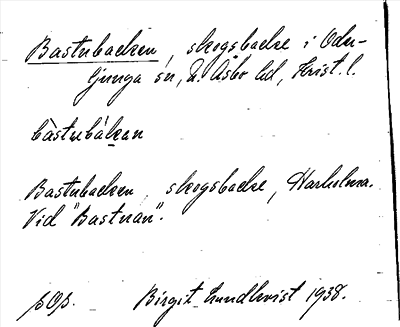 Bastubacken, skogsbacke i Oder-
ljunga sn, N. Åsbo hd, Krist. l.
bàstubákan
Bastubacken, skogsbacke, Harholma.
Vid "Bastuan".
Birgit Lundkvist 1938.